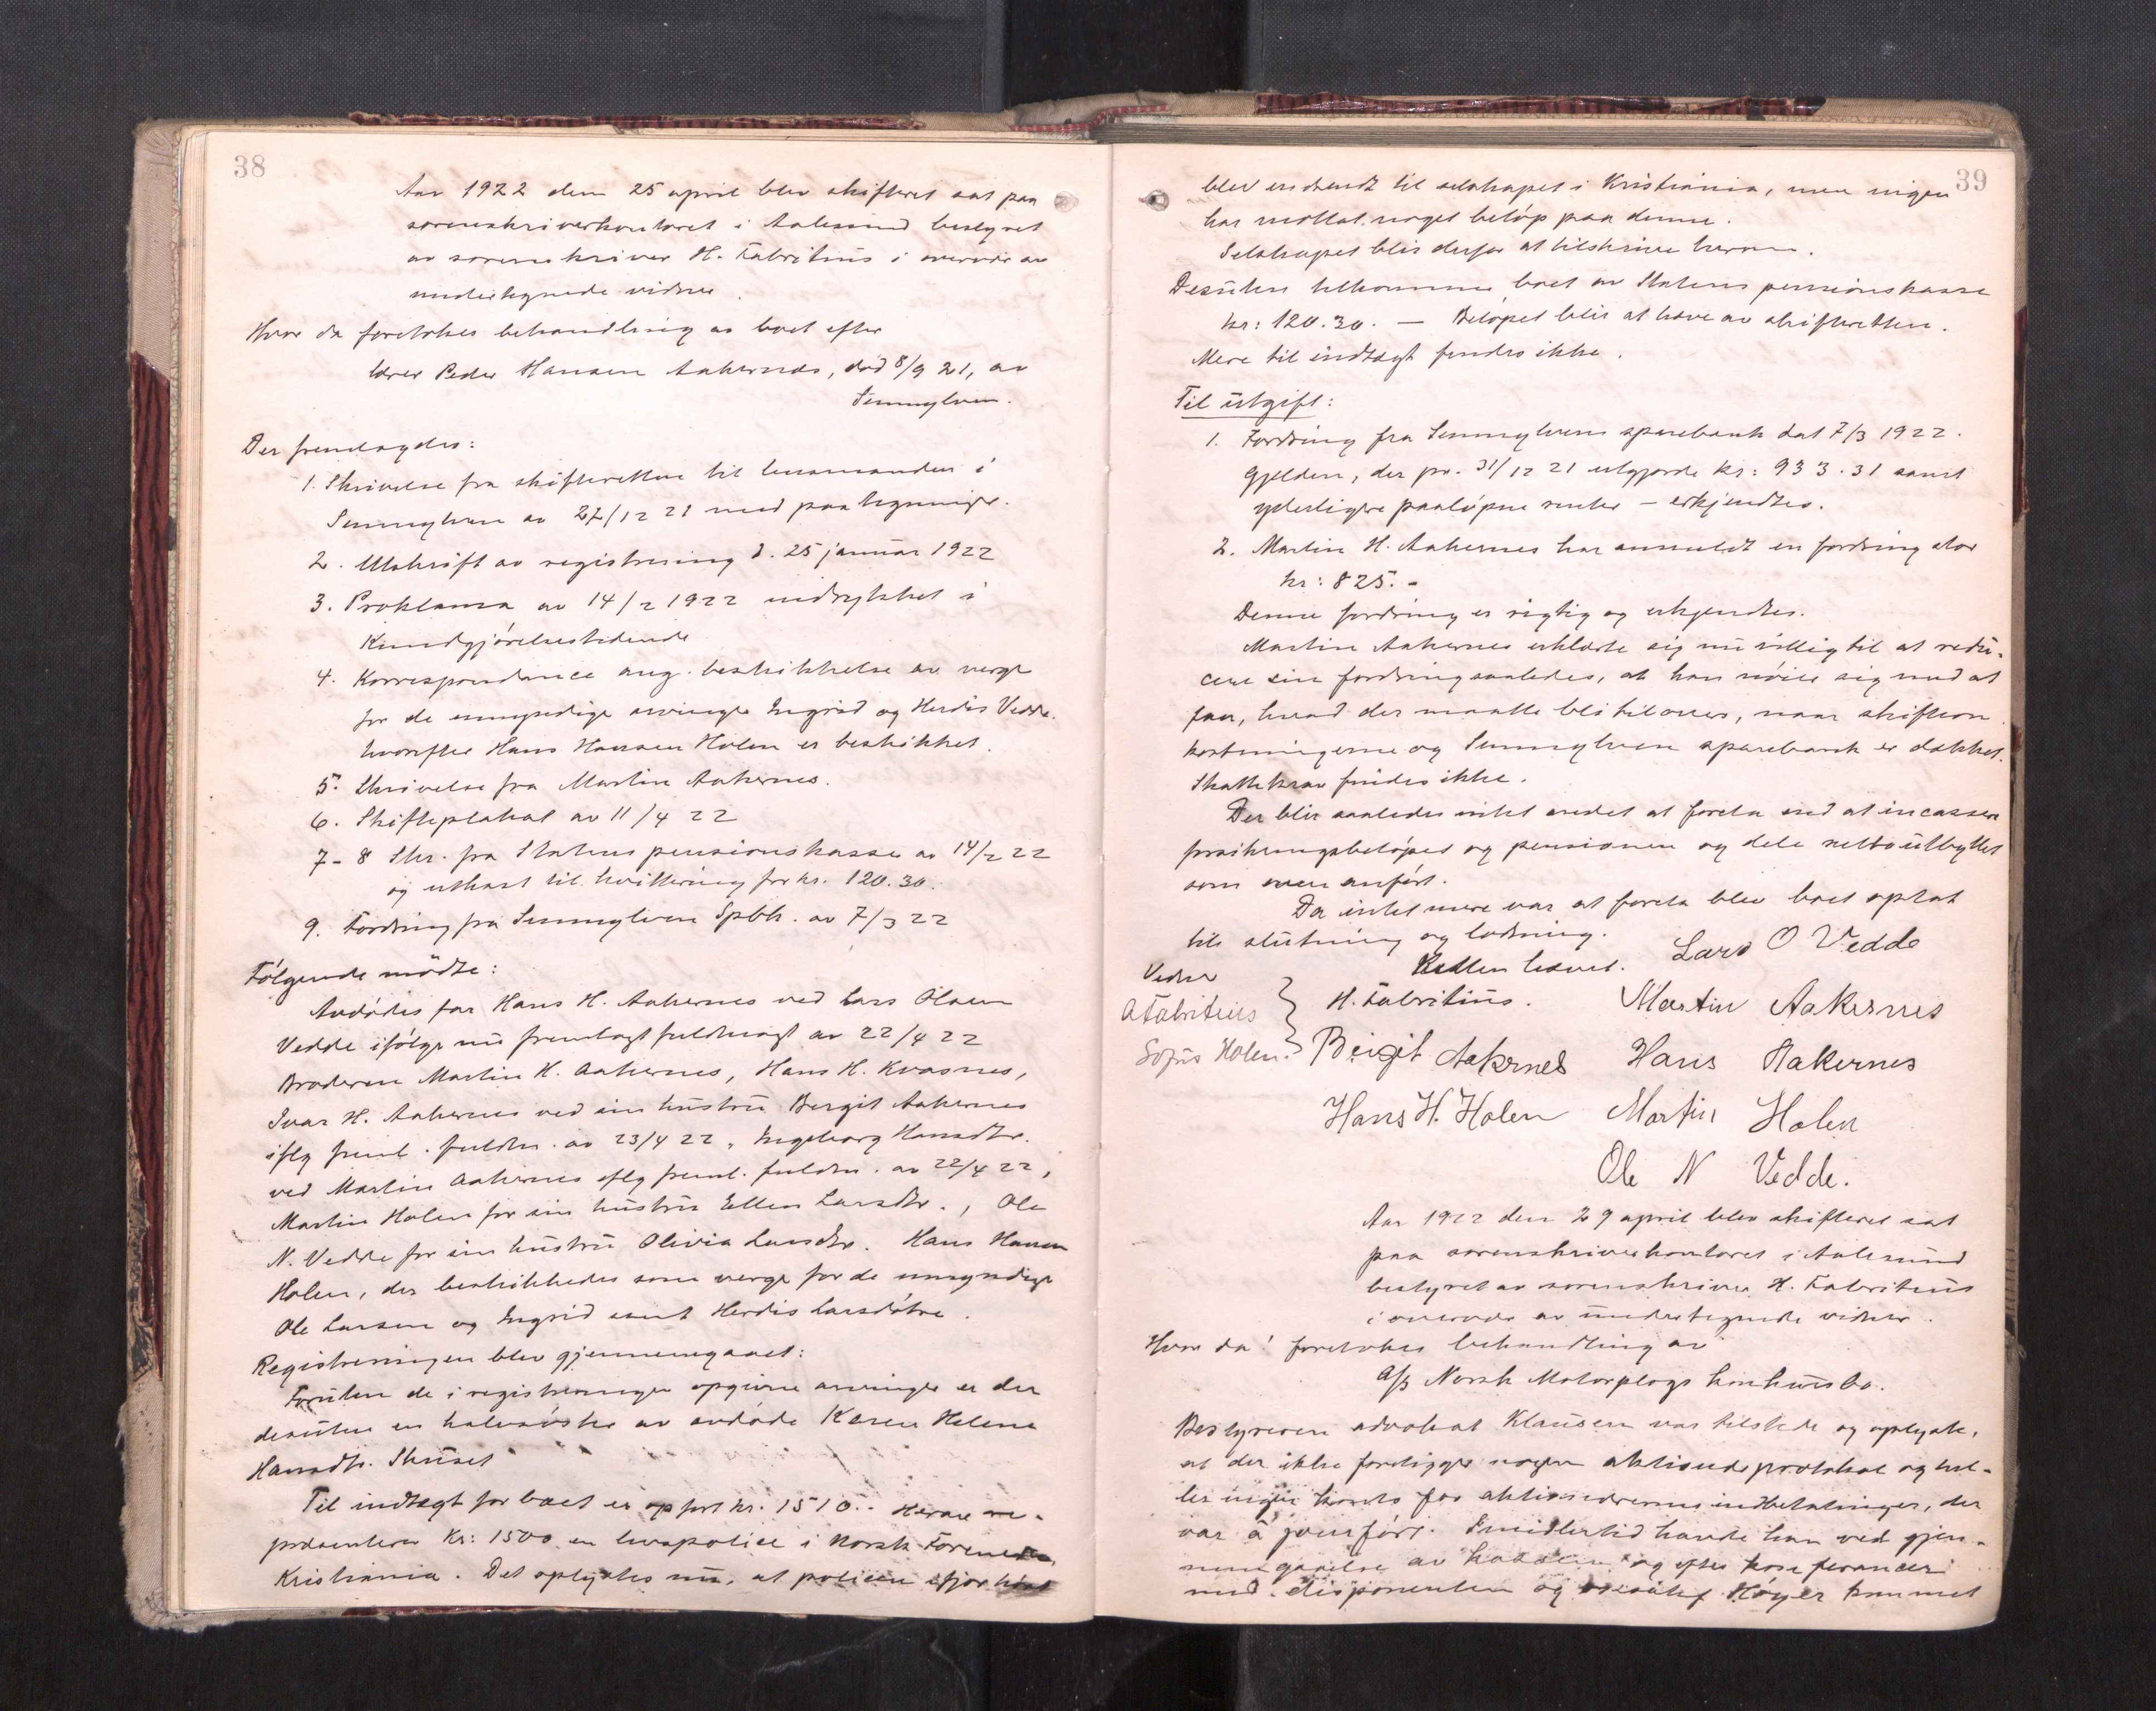 38
Aar 1922 den 25 april blev skifteret sat paa
sorenskriverkontoret i Aalesund bestyret
av sorenskriver H. Fabritius i overvær av
undertegnede vidner.
Hvor da foretokes behandling av boet efter
lærer Peder Hansen Aakernes, død 8/9 21, av
Sunnylven.
Der fremlagdes:
1. Skrivelse fra skifteretten til lensmanden i
Sunnylven av 27/12 21 med paategninger.
2. Utskrift av registrering d. 25 januar 1922
3. Proklama av 14/2 1922 indrykket i
Kundgjørelsestidende
4. Korrespondance ang. beskikkelse av verge
for de umyndige arvinger Ingrid og Herdis Vedde.
hvorefter Hans Hansen Holen er beskikket.
5. Skrivelse fra Martin Aakernes.
6. Skifteplakat av 11/4 22
7-8 Skr. fra Statens pensionskasse av 14/2 22
og utkast til kvittering for kr. 120.30.
9. Fordring fra Sunnylven Spbk. av 7/3 22
Følgende mødte:
Avdødes far Hans H. Aakernes ved Lars Olsen
Vedde ifølge nu fremlagt fuldmagt av 22/4 22
Broderen Martin H. Aakernes, Hans H. Kvasnes,
Ivar H. Aakernes ved sin hustru Bergit Aakernes
iflg freml. fuldm. av 23/4 22, Ingeborg Hansdtr.
ved Martin Aakernes iflg freml. fuldm. av 22/4 22,
Martin Holen for sin hustru Ellen Larsdtr., Ole
N. Vedde for sin hustru Olivia Larsdtr. Hans Hansen
Holen, der beskikkedes som verge for de umyndige
Ole Larsen og Ingrid samt Herdis Larsdøtre.
Registreringen blev gjennemgaaet:
Foruten de i registreringen opgivne arvinger er der
desuten en halvsøster av avdøde Karen Helene
Hansdtr. Skuset
Til indtægt for boet er opført kr. 1510.- Herav re-
præsenterer kr: 1500 en livspolice i Norsk Forenede
Kristiania. Det oplystes nu, at policen ifjor høst
39
blev indsendt til selskapet i Kristiania, men ingen
har mottat noget beløp paa denne.
Selskapet blir derfor at tilskrive herom.
Desuten tilkommer boet av Statens pensionskasse
kr: 120.30. — Beløpet blir at hæve av skifteretten.
Mere til indtægt fandes ikke.
Til utgift:
1. Fordring fra Sunnylvens sparebank dat 7/3 1922.
Gjælden, der pr. 31/12 21 utgjorde kr: 933.31 samt
yderligere paaløpne renter - erkjendtes.
2. Martin H. Aakernes har anmeldt en fordring stor
kr: 825.-
Denne fordring er rigtig og erkjendtes.
Martin Aakernes erklærte sig nu villig til at redu-
cere sin fordring saaledes, at han nøier sig med at
faa, hvad der maatte bli tilovers, naar skifteom-
kostningerne og Sunnylven sparebank er dækket.
Skattekrav findes ikke.
Der blir saaledes intet andet at foreta end at incassere
forsikringsbeløpet og pensionen og dele nettoutbyttet
som ovenanført.
Da intet mere var at foreta blev boet optat
til slutning og lodning.
Retten hævet. Lars O Vedde
Vidner
A Fabritius H. Fabritius. Martin Aakernes
Sofus Holen. Bergit Aakernes Hans Aakernes
Hans H. Holen Martin Holen
Ole N Vedde.
Aar 1922 den 29 april blev skifteret sat
paa sorenskriverkontoret i Aalesund
bestyret av sorenskriver H. Fabritius
i overvær av undertegnede vidner.
Hvor da foretokes behandling av
A/S Norsk Motorplogs konkursbo.
Bestyreren advokat Klausen var tilstede og oplyste,
at der ikke foreligger nogen aktionærprotokol og hel-
ler ingen konto for aktionærernes indbetalinger, der
var à jourført. Imidlertid hadde han ved gjen-
nemgaaelse av og efter konferancer
med disponenten og Høyer kommet